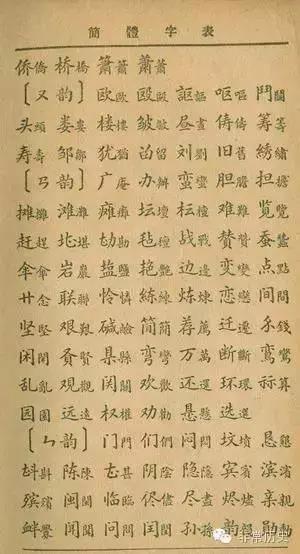 簡體字表
侨僑 桥橋 箫簫 萧蕭
〔ㄡ韵〕 欧歐 殴毆 讴謳 呕嘔 鬥鬭
头頭 娄婁 楼樓 皱皺 昼晝 俦儔 筹籌
寿壽 邹鄒 犹猶 畄留 刘劉 旧舊 绣繡
〔ㄢ韵〕 广庵 办辦 蛮蠻 胆膽 担擔
摊攤 滩灘 瘫癱 坛壇 枟檀 难難 览覽
赶趕 堪 勘 毡氈 战戰 赞贊 蚕蠶
伞傘 岩巖 盐鹽 艳艷 边邊 变變 点點
廿念 联聯 怜憐 練 炼煉 恋戀 间間
坚堅 艰艱 碱鹼 简簡 荐薦 迁遷 錢
闲閑 贤賢 县縣 弯彎 万萬 断斷 鸾鸞
乱亂 观觀 関關 欢歡 还還 环環 祘算
圓 远遠 权權 劝勸 悬懸 选選
〔ㄣ韵〕 门門 们們 闷悶 坟墳 恳懇
斟 陈陳 甚 阴陰 隐隱 宾賓 滨濱
殡殯 闽閩 临臨 侭儘 尽盡 烬燼 亲親
衅釁 闻聞 问問 闰閏 孙孫 韵韻 勋勛
非常历史